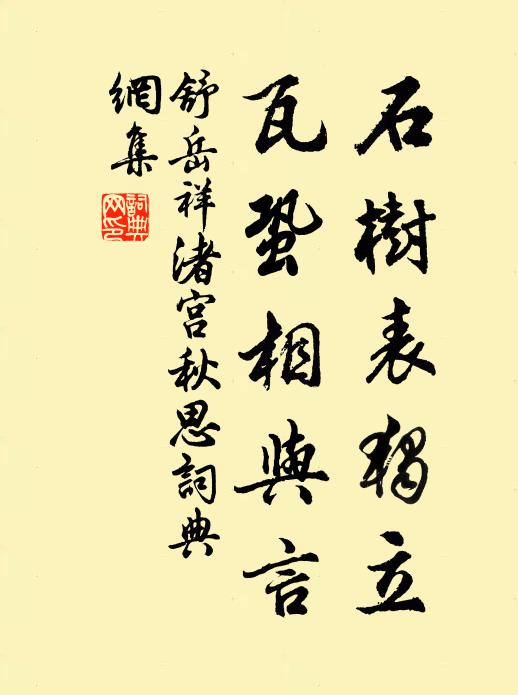 石樹表獨立
瓦蛩相與言
舒岳祥渚宮秋思詞典
網集
詞典
网印